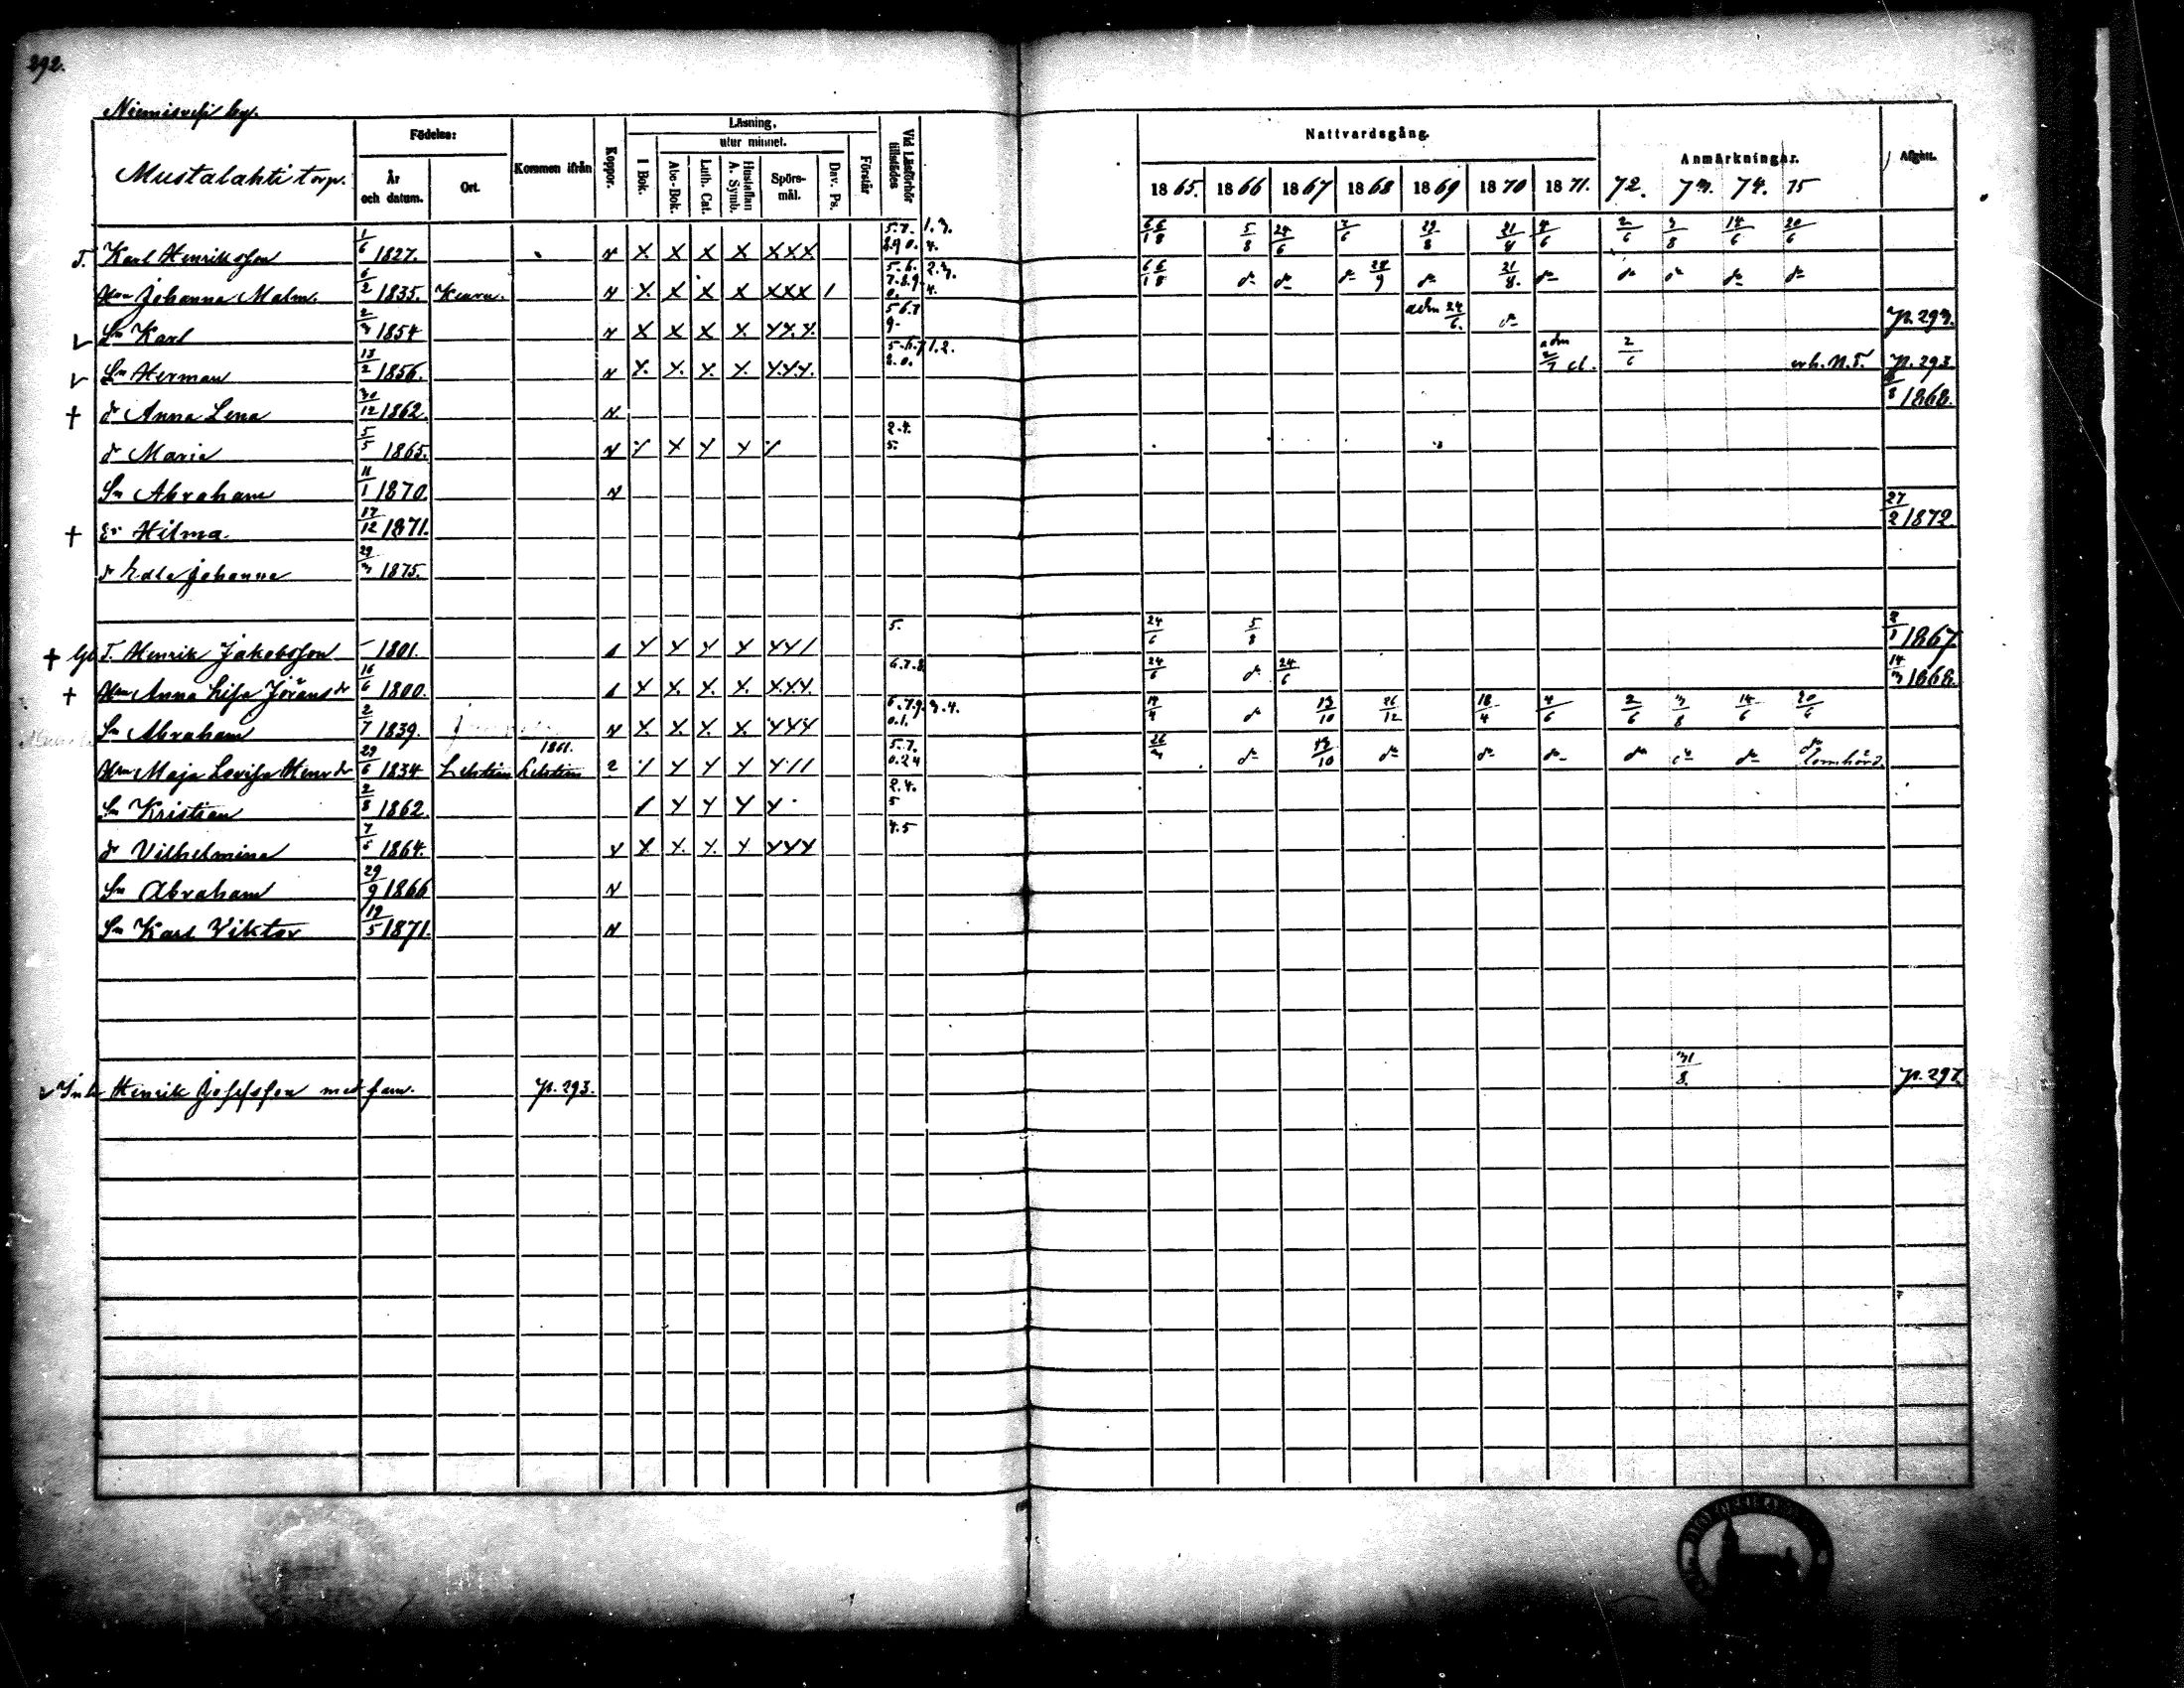 292.
Niemisvesi by.
Mustalahti torp.
Födelse:
År och datum.
Ort.
Kommen ifrån
Koppor.
Läsning,
utur minnet.
I Bok.
Abc-Bok.
Luth. Cat.
Hustaflan A. Symb.
Spörs-mål.
Dav. Ps.
Förstår
Vid Läsförhör tillstädes
Nattvardsgång.
1865. 1866 1867 1868 1869 1870 1871. 72. 73. 74. 75
Anmärkningar.
Afgått.
T. Karl Henriksson 1/6 1827. v X X X X XXX 5.7. 8.9 0. 1.3. 4. 6/1 6/8 5/8 24/6 7/6 29/8 21/8 4/6 2/6 3/8 14/6 20/6
Hu Johanna Malm. 6/2 1835. v X. X X X XXX 1 5.6. 7.8.9. 0. 2.3. 4. 6/1 6/8 do do do 28/9 do 21/8. do do do do do
v Sn Karl 2/3 1854 v X X X X. XX.X. 5 6.7 9. adm 24/6. do p. 293.
v Sn Herman 13/2 1856. v X. X. X. X. X.X.X. 5.6.7 8.0. 1.2. adm cl. 2/6 erh. N.T. p. 293
† dr Anna Lena 30/12 1862. v. 1868.
dr Maria 5/5 1865. v X X X 2.4. 5.
Sn Abraham 11/1 1870. v
† dr Hilma 17/12 1871. 27/2 1872.
dr Edla Johanna 29/3 1875.
† T. Henrik Jakobsson - 1801. X X X X XX1 5. 24/6 5/8 1867.
† Hu Anna Lisa Jöransdr 16/6 1800. X X. X. X. X.X.X. 6.7.8 24/6 do 24/6 14/3 1868.
Sn Abraham 2/7 1839. v X. X. X. X XXX 6.7.9. 0.1. 3.4. do 13/10 26/12 18/4 4/6 2/6 3/8 14/6 20/6
Hu Maja Lovisa Henrdr 29/6 1834 1861. X X X X11 5.7. 0.2 4 26/3 do 13/10 do do do do do do do lomhörd.
Sn Kristian 2/8 1862. X X X X 2.4. 5
dr Vilhelmina 7/6 1864. v X X. X. X XXX 4.5
Sn Abraham 29/9 1866 v
Sn Karl Viktor 19/5 1871. v
v Inh Henrik Josefsson med fam. p. 293. 31/8. p. 297.